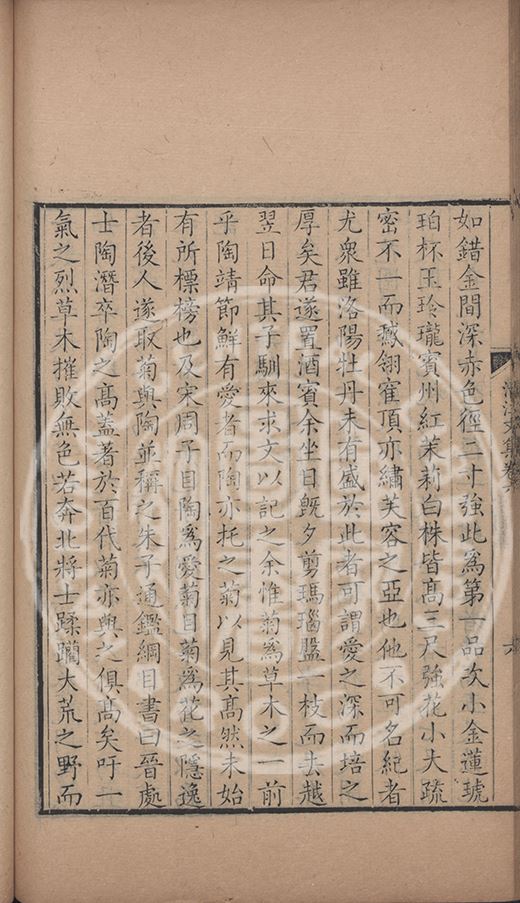 如錯金間深赤色徑二寸強此爲第一品次小金蓮琥
珀杯玉玲瓏賓州紅茉莉白株皆髙三尺強花小大疏
密不一而𧹞翎寉頂亦繡芙容之亞也他不可名紀者
尤衆雖洛陽牡丹未有盛於此者可謂愛之深而培之
厚矣君遂置酒賓余坐日旣夕剪瑪瑙盤一枝而去越
翌日命其子馴來求文以記之余惟菊爲草木之一前
乎陶靖節鮮有愛者而陶亦托之菊以見其髙然未始
有所標榜也及宋周子目陶爲愛菊目菊爲花之隱逸
者後人遂取菊與陶並稱之朱子通鑑綱目書曰晉處
士陶潛卒陶之髙蓋著於百代菊亦與之俱髙矣吁一
氣之烈草木摧敗無色若奔北將士蹂躪大荒之野而